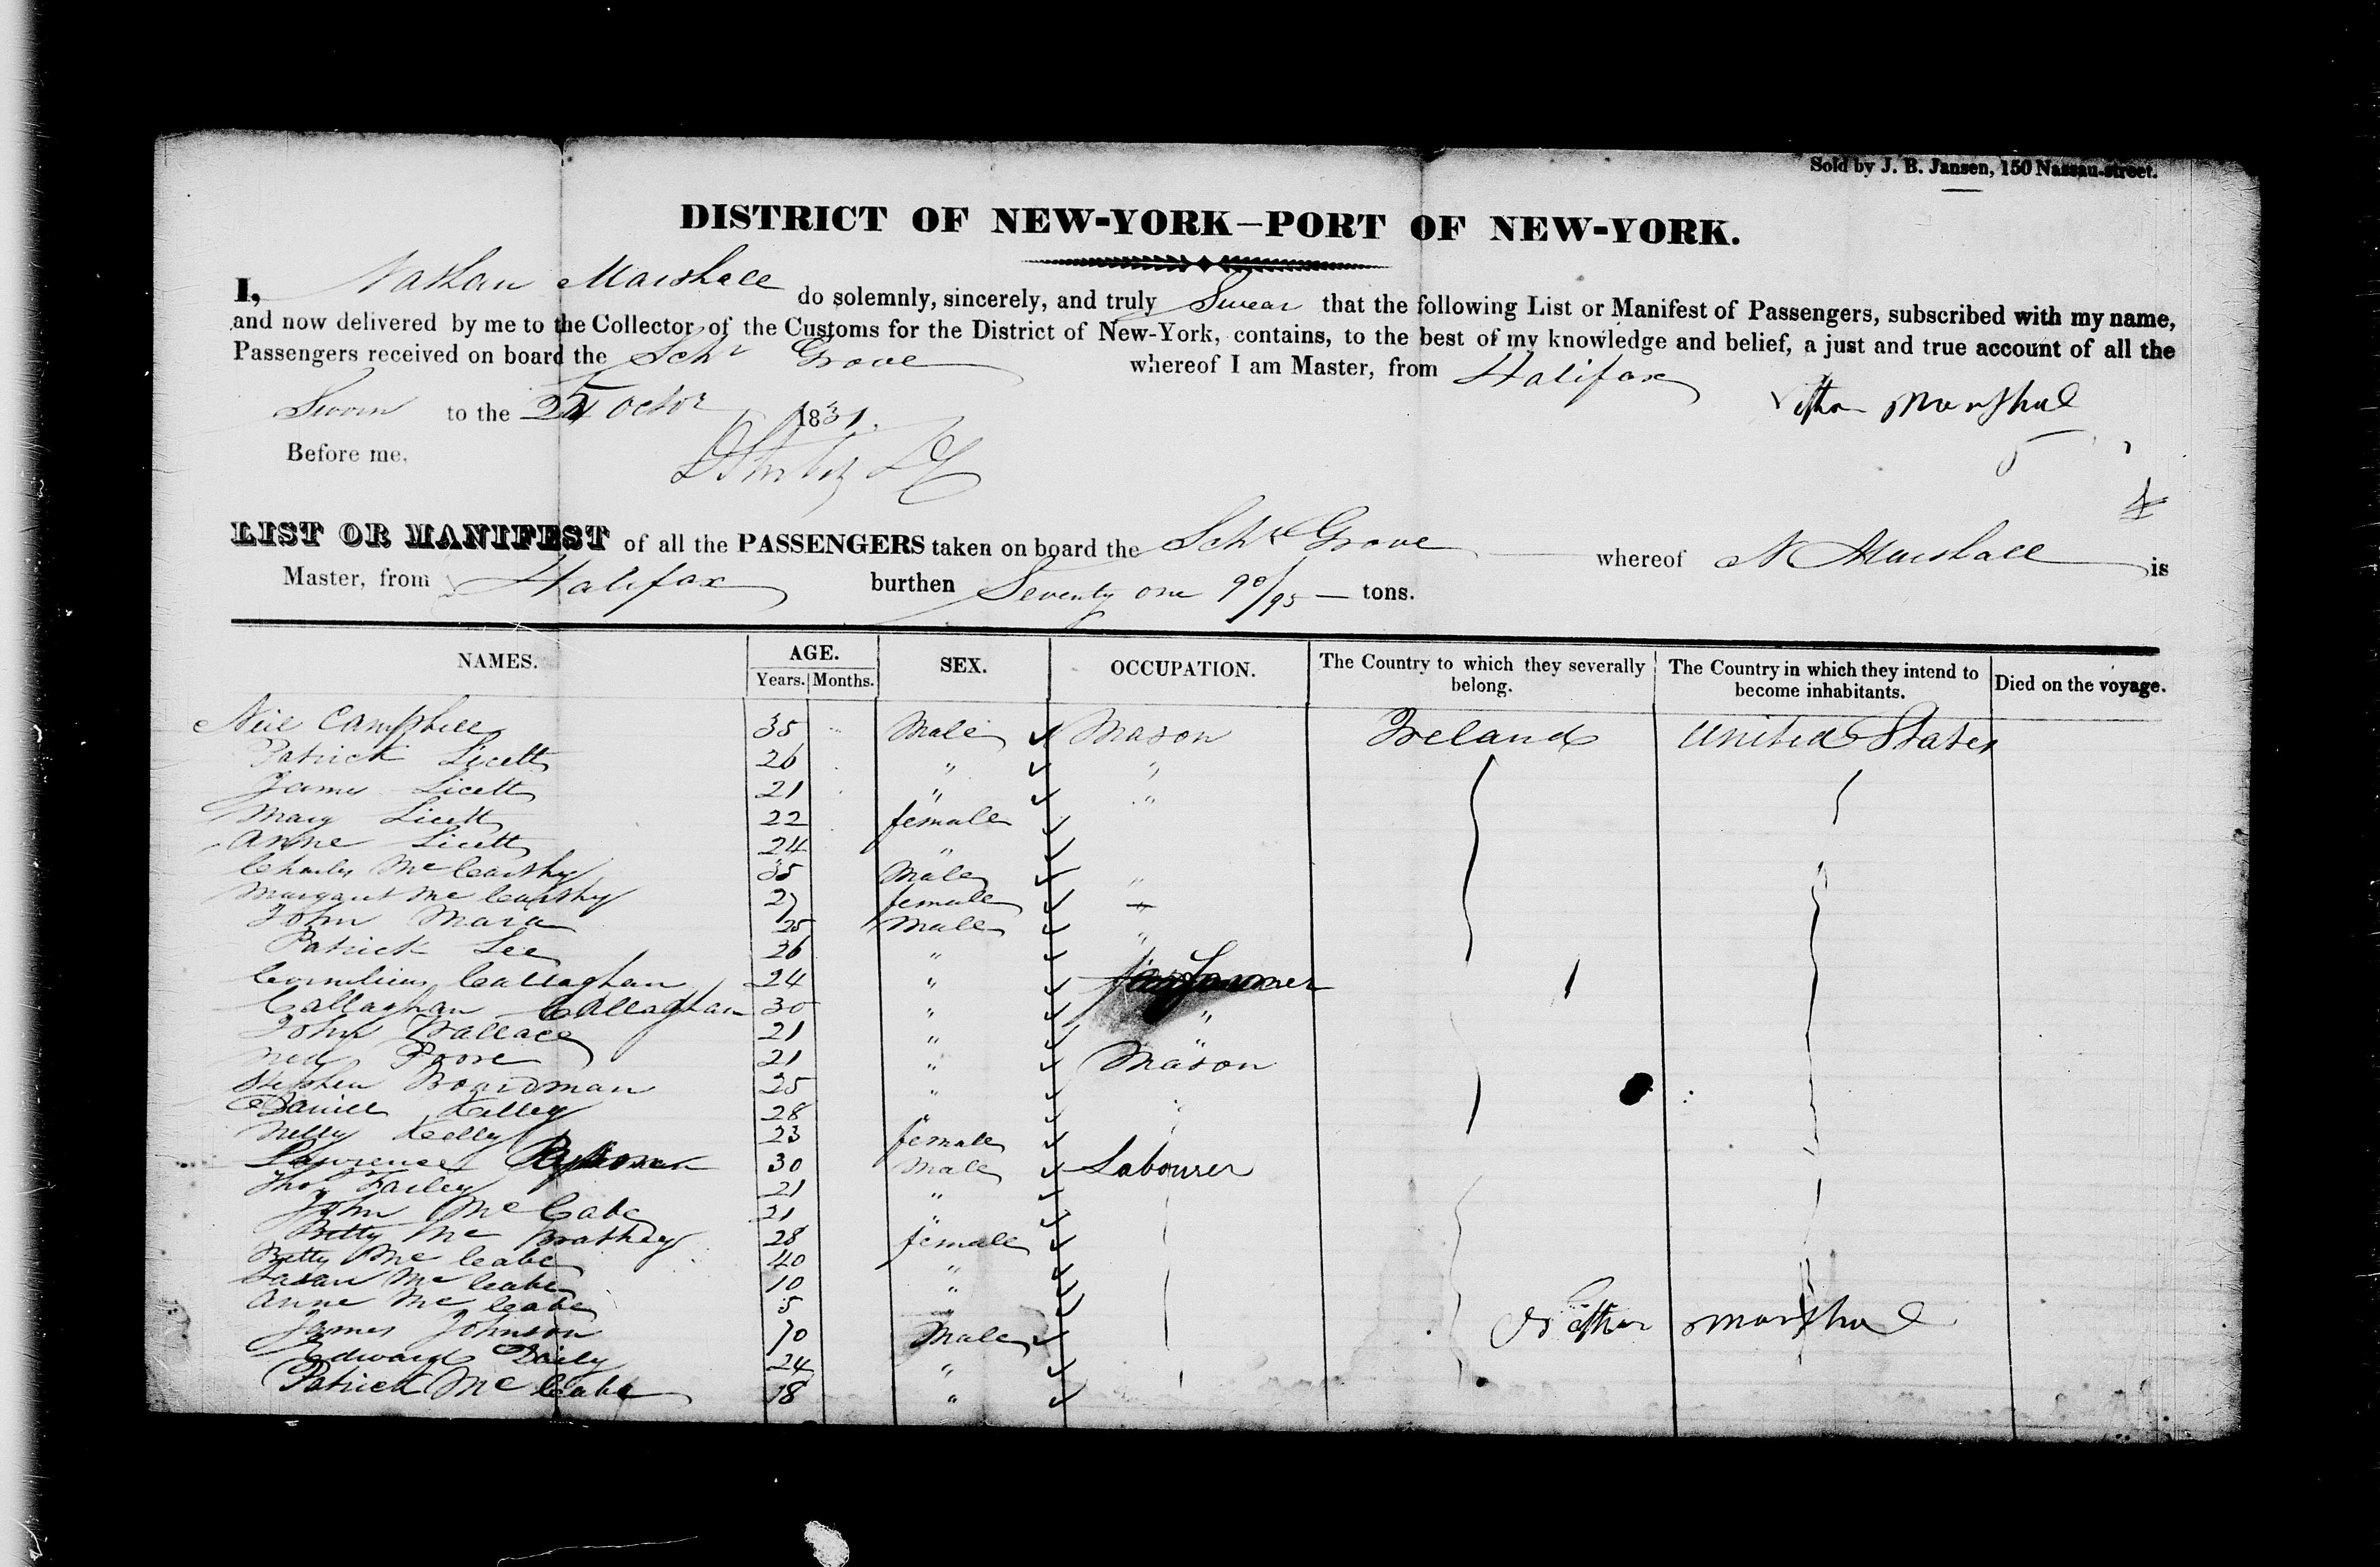 Sold by J. B. Jansen, 150 Nassau-street.
DISTRICT OF NEW-YORK—PORT OF NEW-YORK.
I, Nathan Marshall do solemnly, sincerely, and truly Swear that the following List or Manifest of Passengers, subscribed with my name,
and now delivered by me to the Collector of the Customs for the District of New-York, contains, to the best of my knowledge and belief, a just and true account of all the
Passengers received on board the Schr Grove whereof I am Master, from Halifax
Sworn to the Octor 1831. Marshal
Before me.
LIST OR MANIFEST of all the PASSENGERS taken on board the Schr Grove whereof N Marshall is
Master, from Halifax burthen Seventy one 90/95 tons.
NAMES. AGE. SEX. OCCUPATION. The Country to which they severally belong. The Country in which they intend to become inhabitants. Died on the voyage.
Years. Months.
Neil Campbell 35 " Male Mason Ireland United States
Patrick Licett 26 " "
James Licett 21 " "
Mary Licett 22 female
Anne Licett 24 "
Charles McCarthy 35 Male "
Margaret McCarthy 27 female
John Mara 25 Male "
Patrick Lee 26 "
Cornelius Callaghan 24 " farmer
Callaghan Callaghan 30 " "
John Wallace 21 " "
Ned Poore 21 " Mason
Stephen Boardman 25 "
Daniel Kelley 28 " "
Nelly Kelly 23 female
Lawrence 30 Male Labourer
Thos Farley 21 "
John McCabe 21 "
Betty Mc 28 female
Betty McCabe 40 "
Susan McCabe 10 "
Anne McCabe 5 "
James Johnson 70 Male Marshal
Edward Daily 24 "
Patrick McCabe 18 "